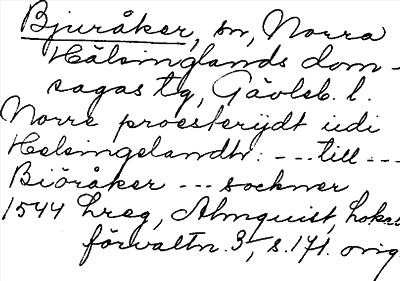 Bjuråker, sn, Norra
Hälsinglands dom-
sagas tg, Gävleb. l.
Norre proesterijdt udi
Helsingelandtt: --- till ---
Biöråker --- sochner
1544 Lreg, Almquist, Lokal
förvaltn. 3, s. 171. orig.